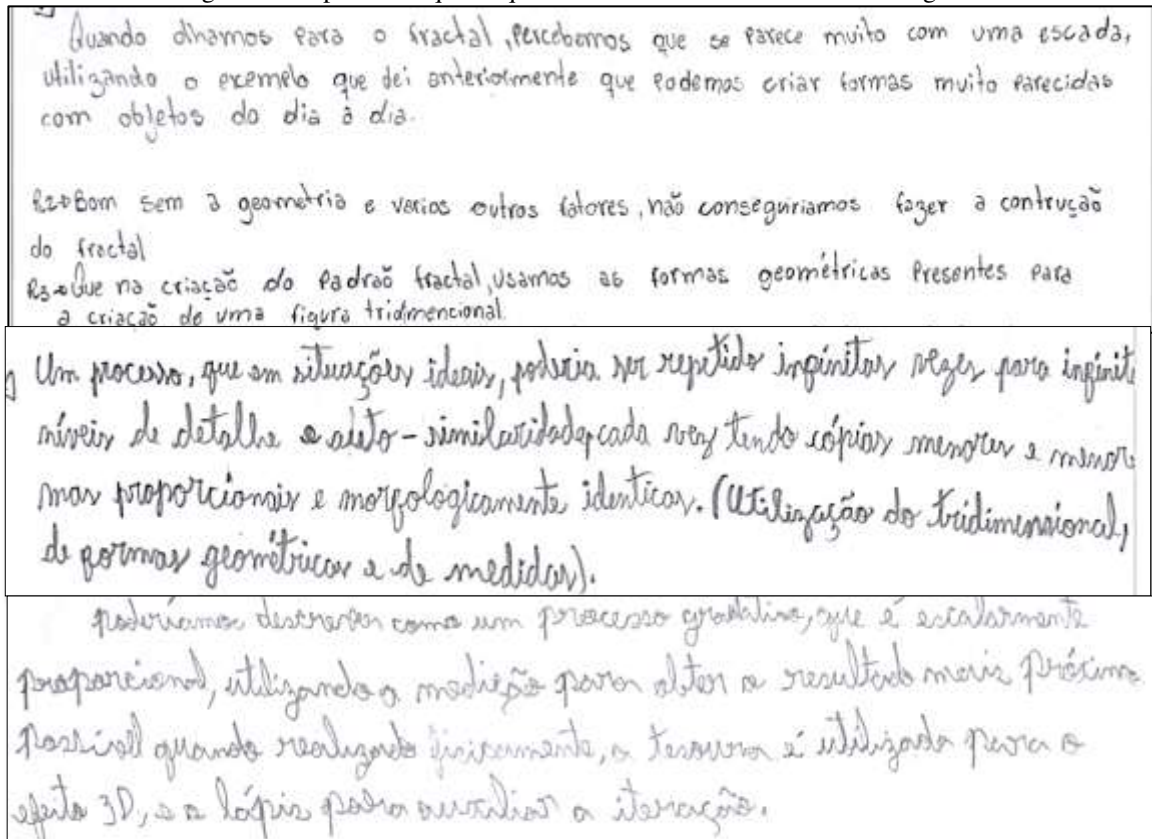 Quando olhamos para o fractal, percebemos que se parece muito com uma escada,
utilizando o exemplo que dei anteriormente que podemos criar formas muito parecidas
com objetos do dia à dia.
R2→Bom sem a geometria e varios outros fatores, não conseguiriamos fazer a contrução
do fractal
R3→Que na criação do Padraõ fractal, usamos as formas geométricas Presentes para
a criação de uma figura tridimencional.
Um processo, que em situações ideais, poderia ser repetido infinitas vezes para infinit
níveis de detalhe e auto-similaridade, cada vez tendo cópias menores e menor
mas proporcionais e morfologicamente identicas. (Utilização do tridimensional,
de formas geométricas e de medidas).
poderíamos descrever como um processo gradativo, que é escalarmente
proporcional, utilizando a medição para obter o resultado mais próximo
possível quando realizado fisicamente, a tesoura é utilizada para o
efeito 3D, e o lápis para auxiliar a iteração.